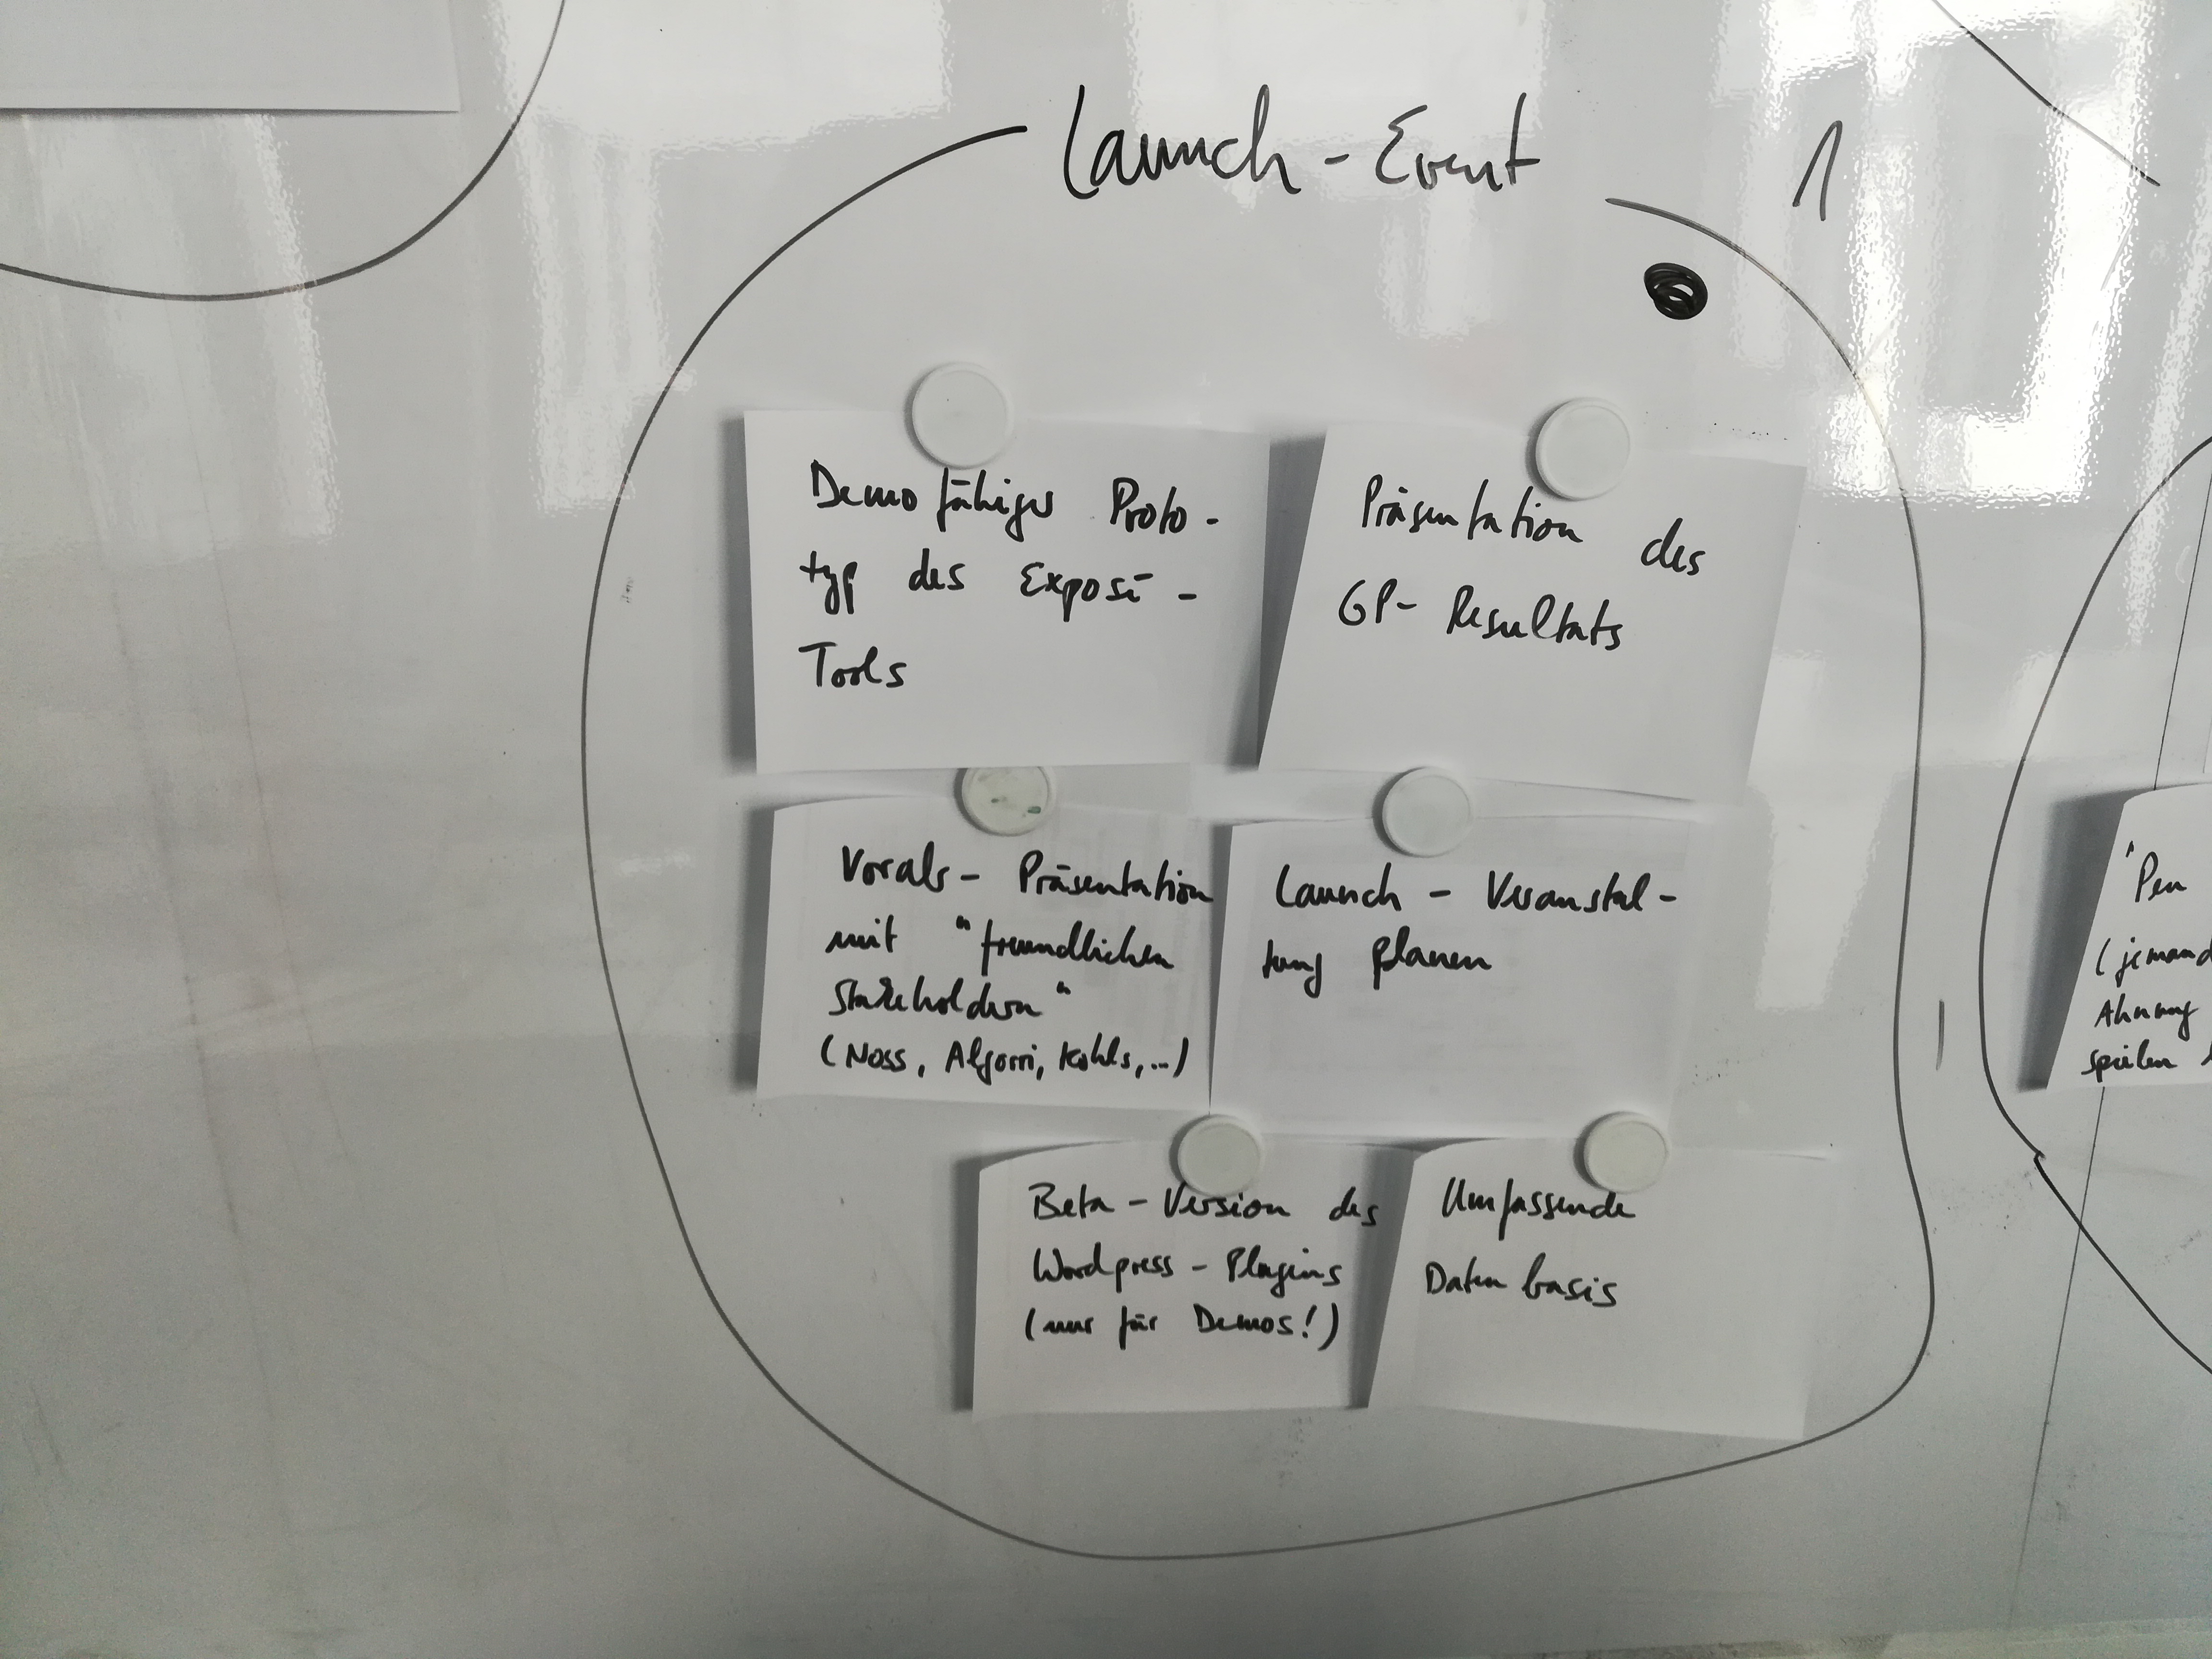 Launch - Event
1
Demofähiger Proto-
typ des Exposé-
Tools
Präsentation des
GP- Resultats
Vorab- Präsentation
mit "freundlichen
Stakeholdern"
(Noss, Algorri, Kohls, ...)
Launch - Veranstal-
tung planen
Beta - Version des
Wordpress - Plugins
(nur für Demos!)
Umfassende
Datenbasis
"Pen
(jemand
Ahnung
spielen